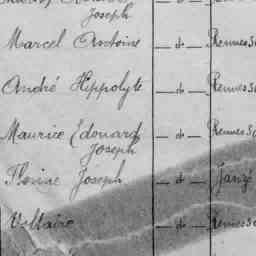 Joseph
Marcel Antoine — d° — Rennes
André Hippolyte — d° — Rennes
Maurice Edouard — d° — Rennes
Joseph
Joseph — d° — Janzé
Voltaire — d° — Rennes